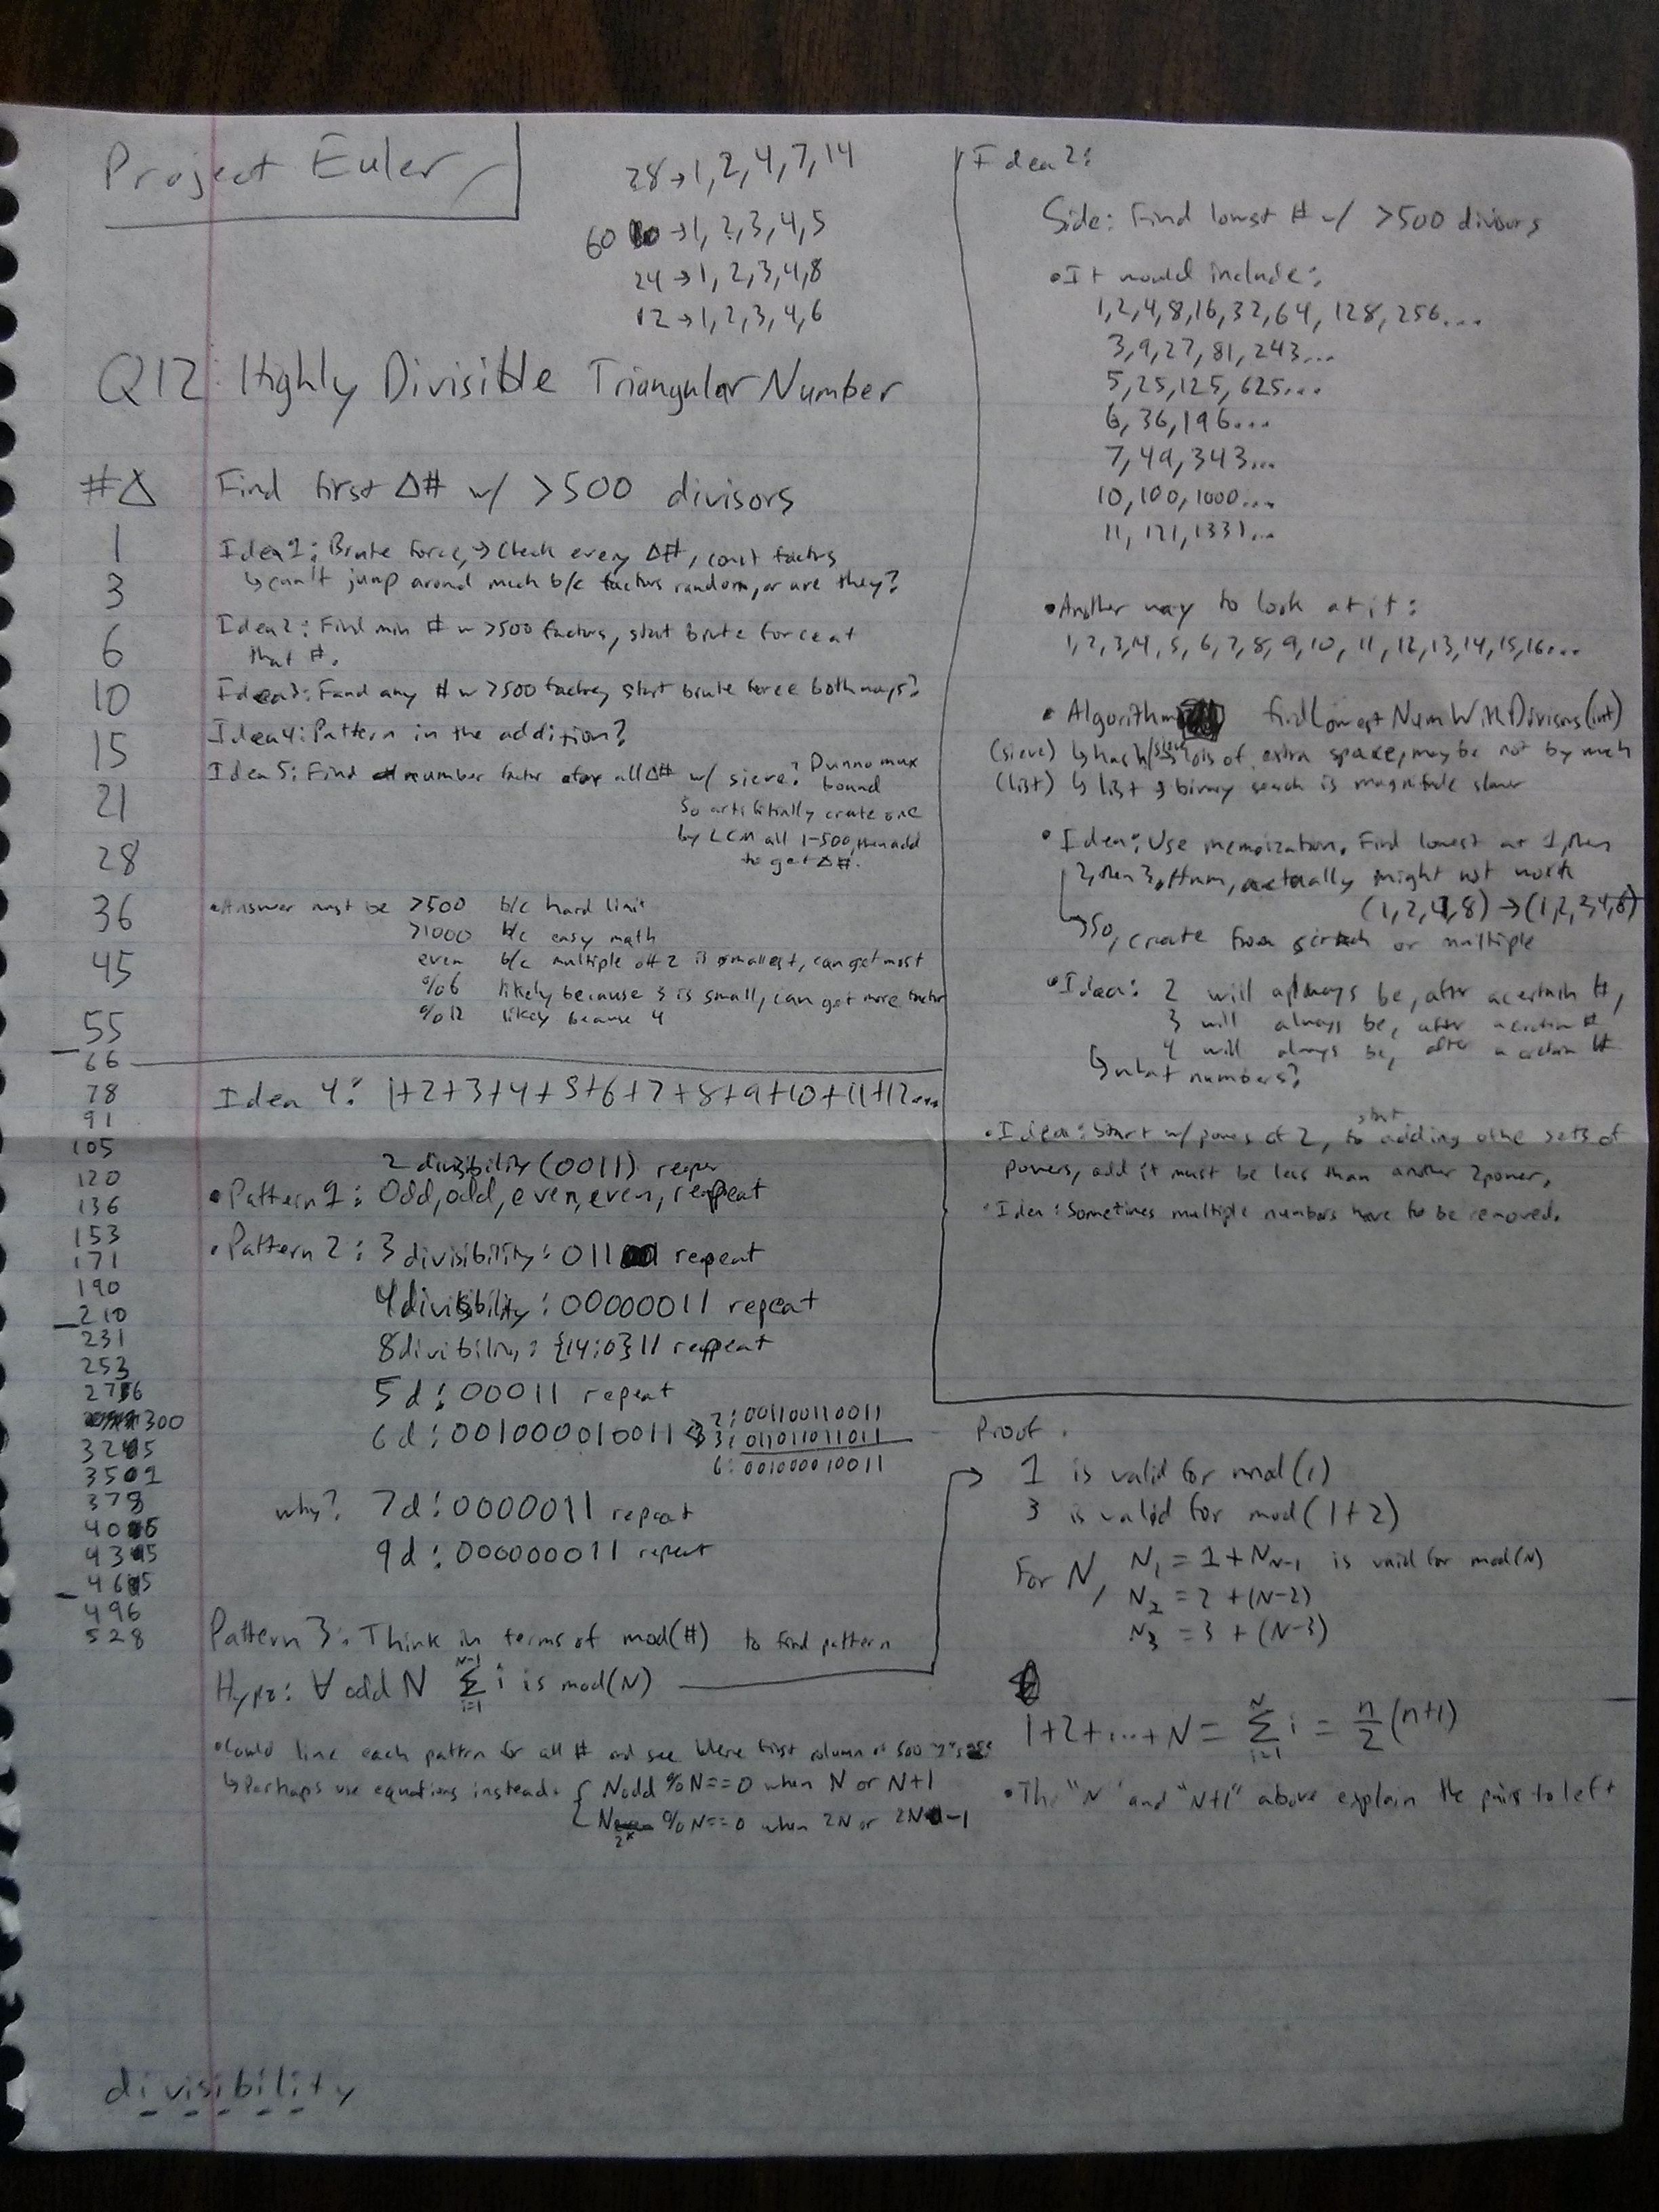 Project Euler
28 → 1, 2, 4, 7, 14
60 → 1, 2, 3, 4, 5
24 → 1, 2, 3, 4, 8
12 → 1, 2, 3, 4, 6
Q12: Highly Divisible Triangular Number
#Δ
1
3
6
10
15
21
28
36
45
55
66
78
91
105
120
136
153
171
190
210
231
253
276
300
325
351
378
405
435
465
496
528
Find first Δ# w/ >500 divisors
Idea 1: Brute force, → Check every Δ#, count factors
↳ can't jump around much b/c factors random, or are they?
Idea 2: Find min # w >500 factors, start brute force at
that #.
Idea 3: Fand any # w >500 factrs, start brute force both ways?
Idea 4: Pattern in the addition?
Idea 5: Find number factor for all Δ# w/ sieve? Dunno max
bound
So artificially create one
by LCM all 1-500, then add
to get Δ#.
• Answer must be >500 b/c hard limit
>1000 b/c easy math
even b/c multiple of 2 is smallest, can get most
%6 likely because 3 is small, can get more factor
%12 likely because 4
Idea 4: 1+2+3+4+5+6+7+8+9+10+11+12...
2 divisibility (0011) repeat
• Pattern 1: Odd, odd, even, even, repeat
• Pattern 2: 3 divisibility: 011 repeat
4 divisibility: 00000011 repeat
8 divibility: {14:0}11 repeat
5 d: 00011 repeat
6 d: 001000010011
2: 001100110011
3: 011011011011
6: 001000010011
why? 7d: 0000011 repeat
9d: 000000011 repeat
Pattern 3: Think in terms of mod(#) to find pattern
Hypo: ∀ odd N ∑ i=1 N-1 i is mod(N)
• Could line each pattern for all # and see where first column of 500
↳ Perhaps use equations instead. { Nodd %N==0 when N or N+1
N 2ˣ %N==0 when 2N or 2N-1
divisibility
Idea 2:
Side: Find lowest # w/ >500 divisors
• It would include:
1,2,4,8,16,32,64, 128, 256...
3,9,27, 81, 243...
5,25,125, 625...
6, 36, 196...
7, 49, 343...
10, 100, 1000...
11, 121, 1331...
• Another way to look at it:
1, 2, 3, 4, 5, 6, 7, 8, 9, 10, 11, 12, 13, 14, 15, 16...
• Algorithm findLowestNumWithDivisors(int)
(sieve) ↳ hash/sieve lots of extra space, maybe not by much
(list) ↳ list & binary search is magnitude slower
• Idea: Use memoization. Find lowest at 1, then
2, then 3, actually might not work
(1,2,4,8) → (1,2,3,4,6)
↳ So, create from scratch or multiple
• Idea: 2 will always be, after a certain #,
3 will always be, after a certain #
4 will always be, after a certain #
↳ what numbers?
• Idea: Start w/ powers of 2, start adding other sets of
powers, add it must be less than another 2power.
• Idea: Sometimes multiple numbers have to be removed.
Proof.
1 is valid for mod(1)
3 is valid for mod(1+2)
For N, N₁ = 1 + N N-1 is valid for mod(N)
N₂ = 2 + (N-2)
N₃ = 3 + (N-3)
1+2+...+N = ∑ i=1 N i = n/2 (n+1)
• The "N" and "N+1" above explain the pairs to left